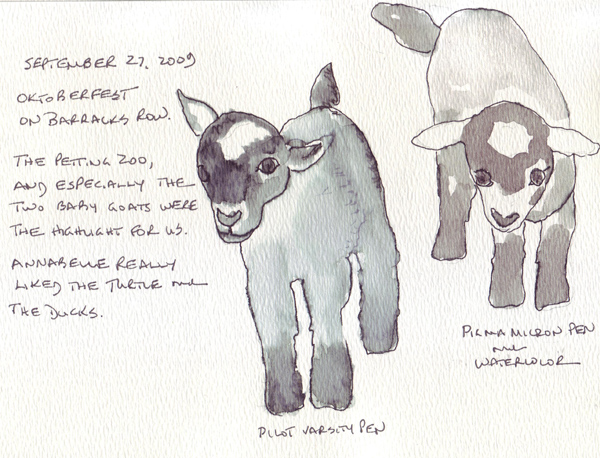 SEPTEMBER 27, 2009
OKTOBERFEST
ON BARRACKS ROW.
THE PETTING ZOO,
AND ESPECIALLY THE
TWO BABY GOATS WERE
THE HIGHLIGHT FOR US.
ANNABELLE REALLY
LIKED THE TURTLE AND
THE DUCKS.
PILOT VARSITY PEN
PIGMA MICRON PEN
AND
WATERCOLOR